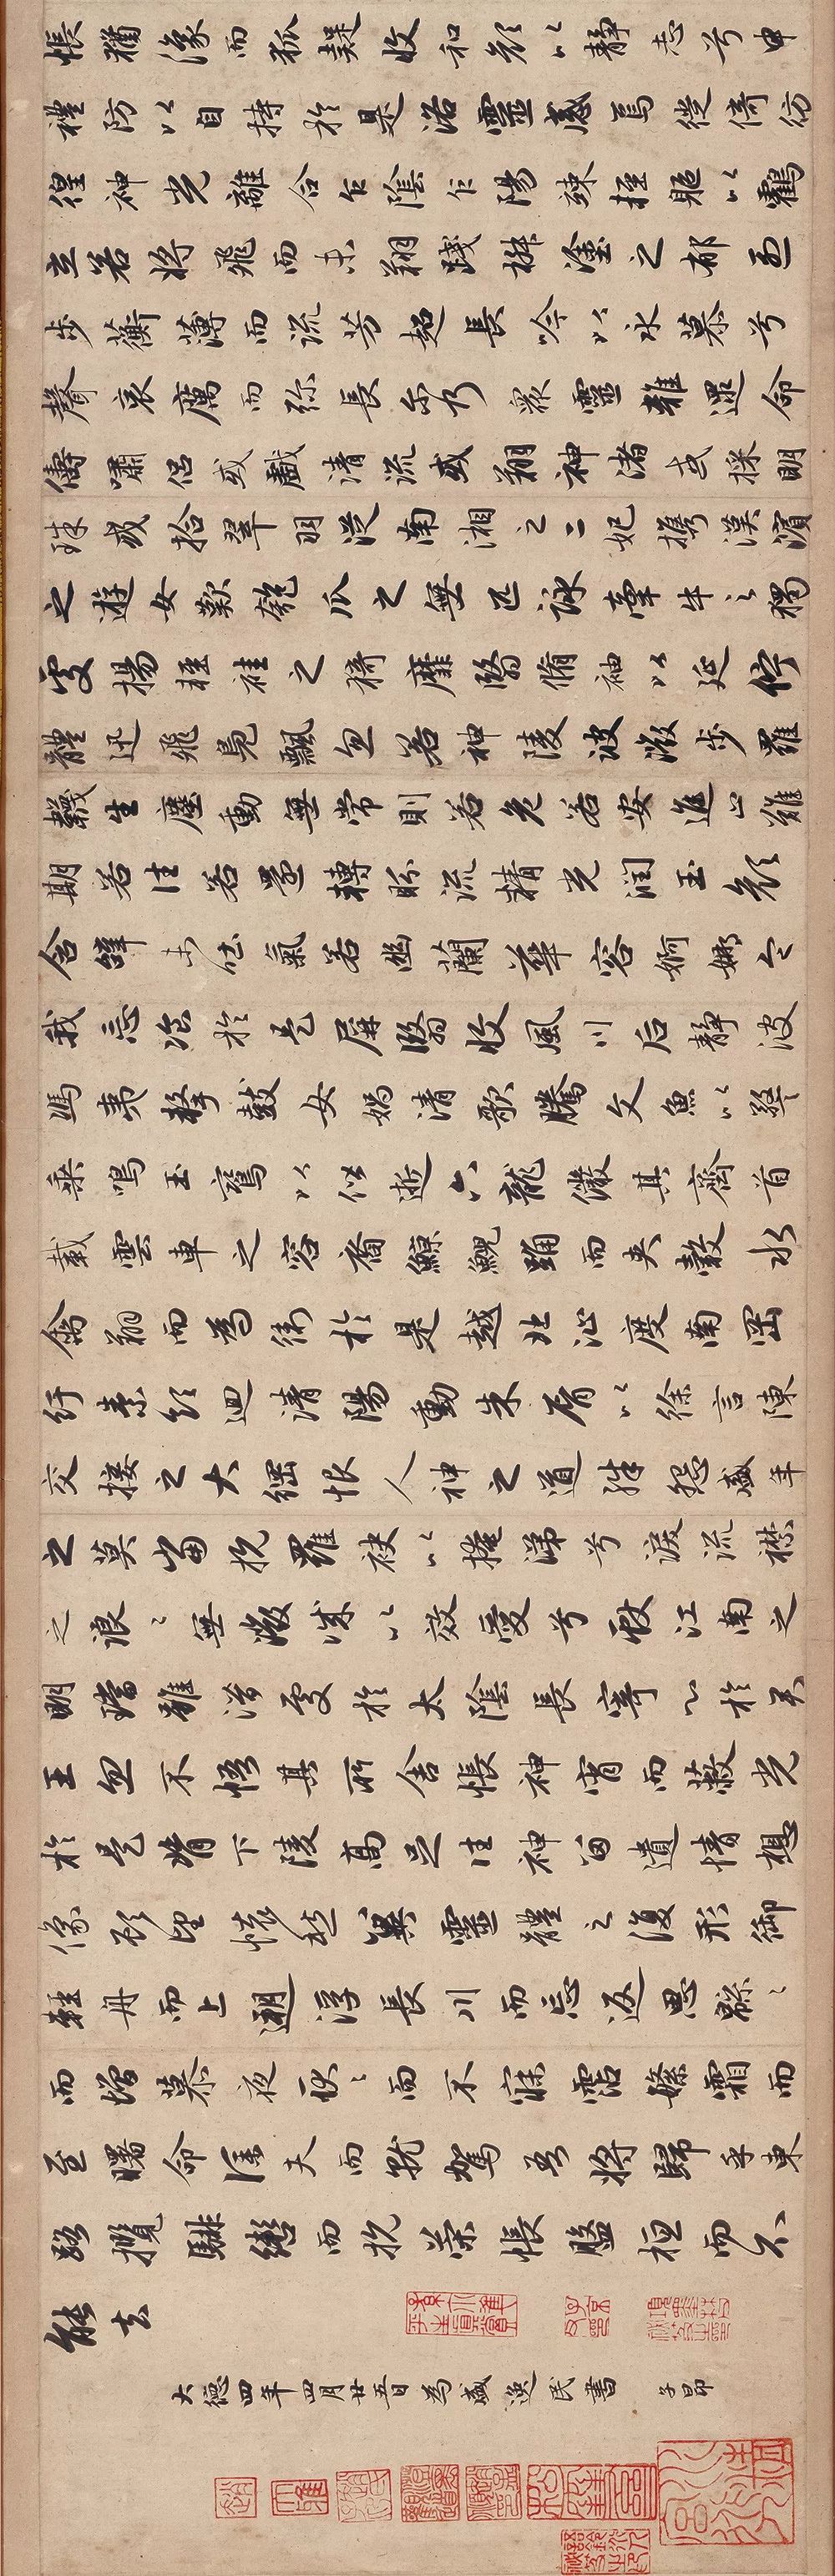 悵猶豫而狐疑收和顏以靜志兮申
禮防以自持於是洛靈感焉徙倚彷
徨神光離合乍陰乍陽竦輕軀以鶴
立若將飛而未翔踐椒塗之郁烈
步蘅薄而流芳超長吟以永慕兮
聲哀厲而弥長尒乃衆靈雜遝命
儔嘯侶或戲清流或翔神渚或採明
珠或拾翠羽從南湘之二妃携漢濱
之遊女歎匏瓜之無匹詠牽牛之獨
處揚輕袿之猗靡翳脩袖以延佇
體迅飛鳧飄忽若神陵波微步羅
韈生塵動無常則若危若安進止難
期若往若還轉眄流精光潤玉顏
含辭未吐氣若幽蘭華容婀娜令
我忘飡於是屏翳收風川后靜波
馮夷擊鼓女媧清歌騰文魚以警
乘鳴玉鸞以偕逝六龍儼其齊首
載雲車之容裔鯨鯢踊而夾轂水
禽翔而為衛於是越北沚度南岡
紆素領迴清陽動朱脣以徐言陳
交接之大綱恨人神之道殊怨盛年
之莫當抗羅袂以掩涕兮淚流襟
之浪〻無微誠以效愛兮獻江南之
明璫雖潛處於太陰長寄心於君
王忽不悟其所舍悵神宵而蔽光
於是背下陵高足往神留遺情想
像顧望懷愁冀靈體之復形御
輕舟而上遡浮長川而忘返思緜〻
而增慕夜耿〻而不寐霑繁霜而
至曙命僕夫而就駕吾將歸乎東
路攬騑轡而抗策悵盤桓而不
能去
大德四年四月廿五日為盛逸民書 子昂